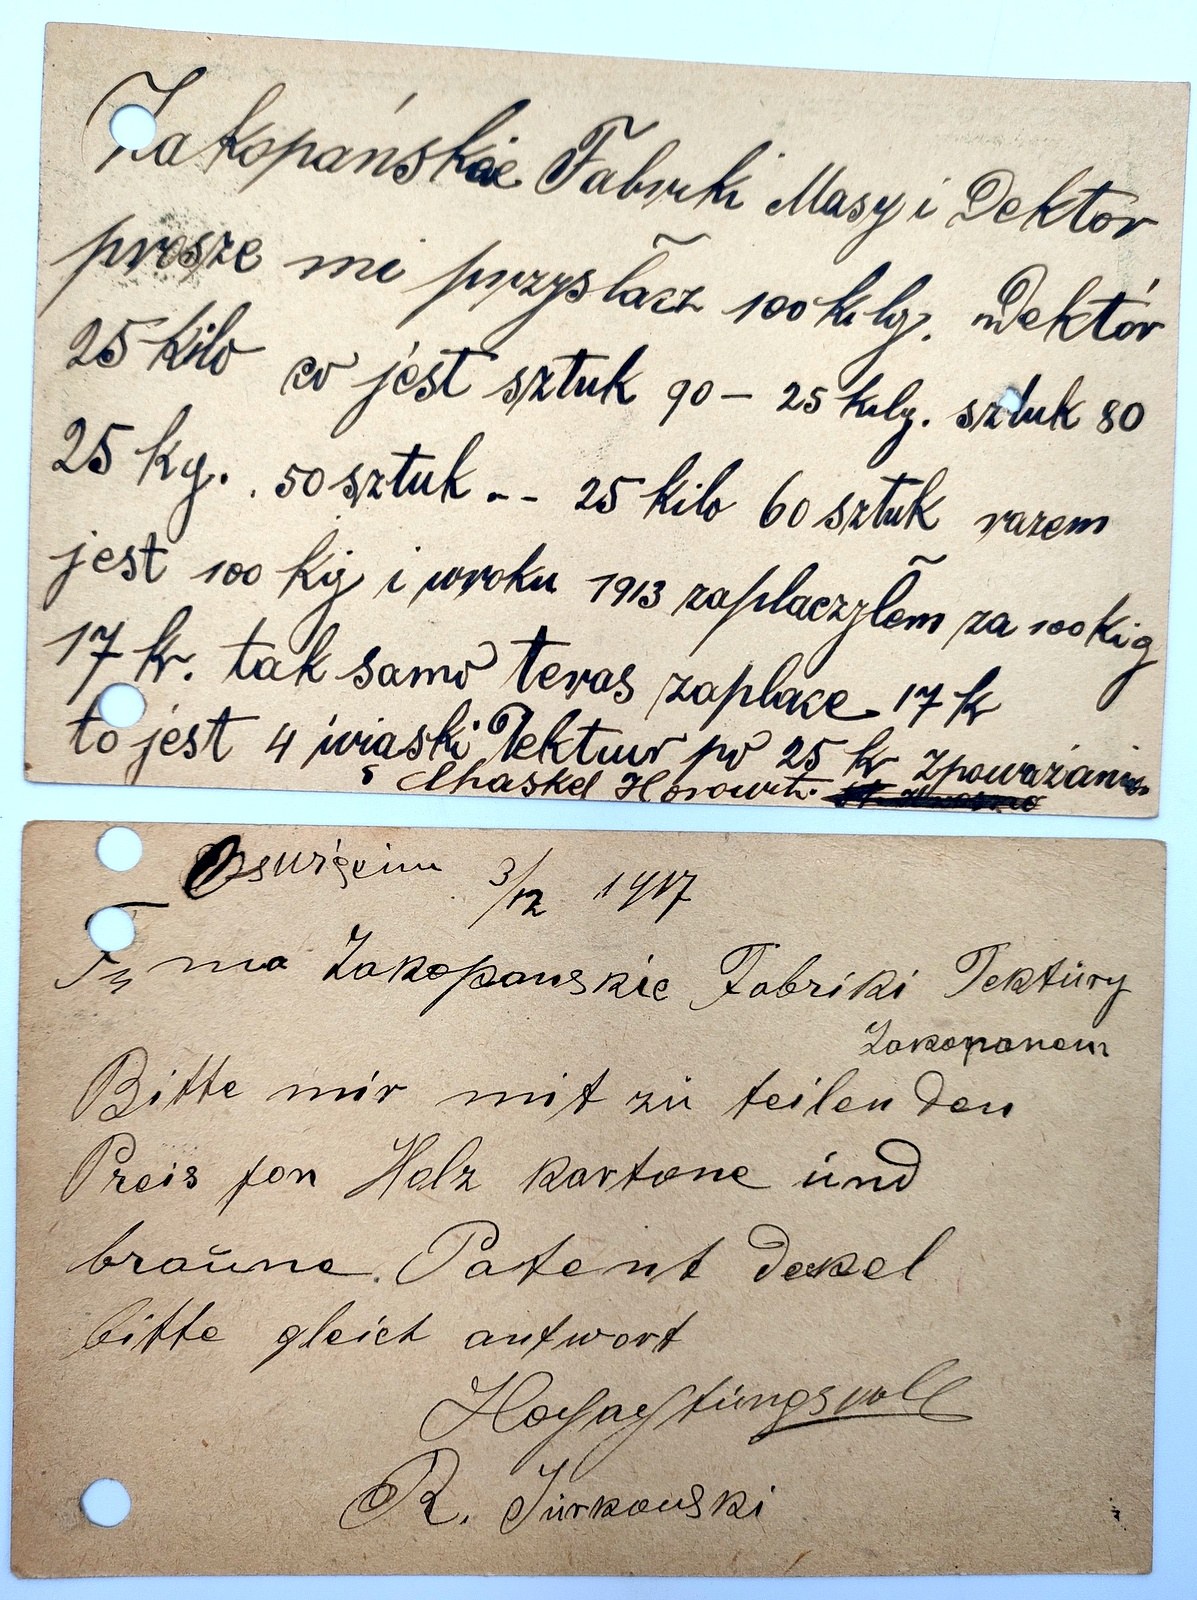 Zakopańskie Fabriki Masy i Dektor
prosze mi przysłacz 100 kilg. Dektór
25 kilo co jest sztuk 90 – 25 kilg. sztuk 80
25 kg. . 50 sztuk . - - 25 kilo 60 sztuk razem
jest 100 Kig i wroku 1913 zaplaczyłem za 100 Kig
17 kr. tak samo teras zaplace 17 kr
to jest 4 wiaski Tektur po 25 kr Zpoważaniem
Chaskel Horowitz
Oswięcim 3/12 1917
Zakopanskie Fabriki Tektüry
Zakopanem
Bitte mir mit zü teilen den
Preis fon Holz kartone ünd
braune. Patent dekel
bitte gleich antwort
Hochachtüngsvoll
R. Jürkowski